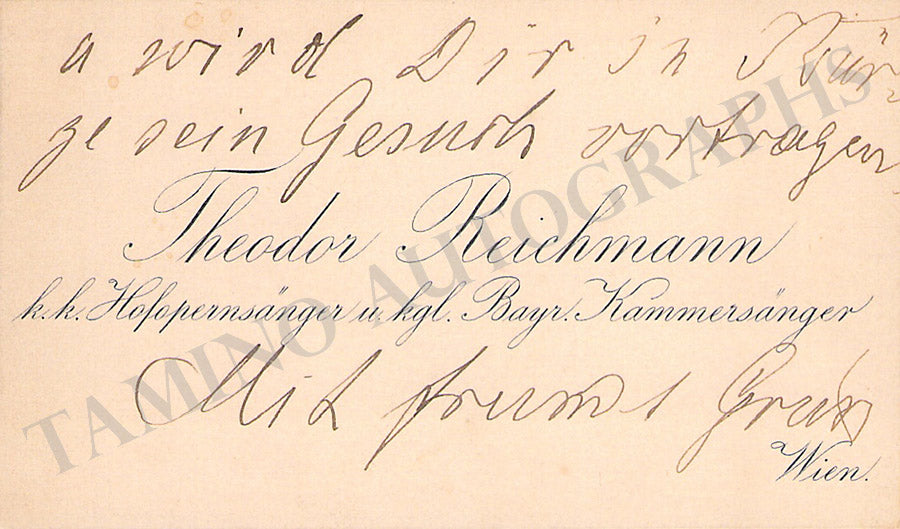 u wird Dir in Kür-
ze sein Gesuch vortragen
Theodor Reichmann
k. k. Hofopernsänger u. kgl. Bayr. Kammersänger
Mit freundl Gruß
Wien.
TAMINO AUTOGRAPHS